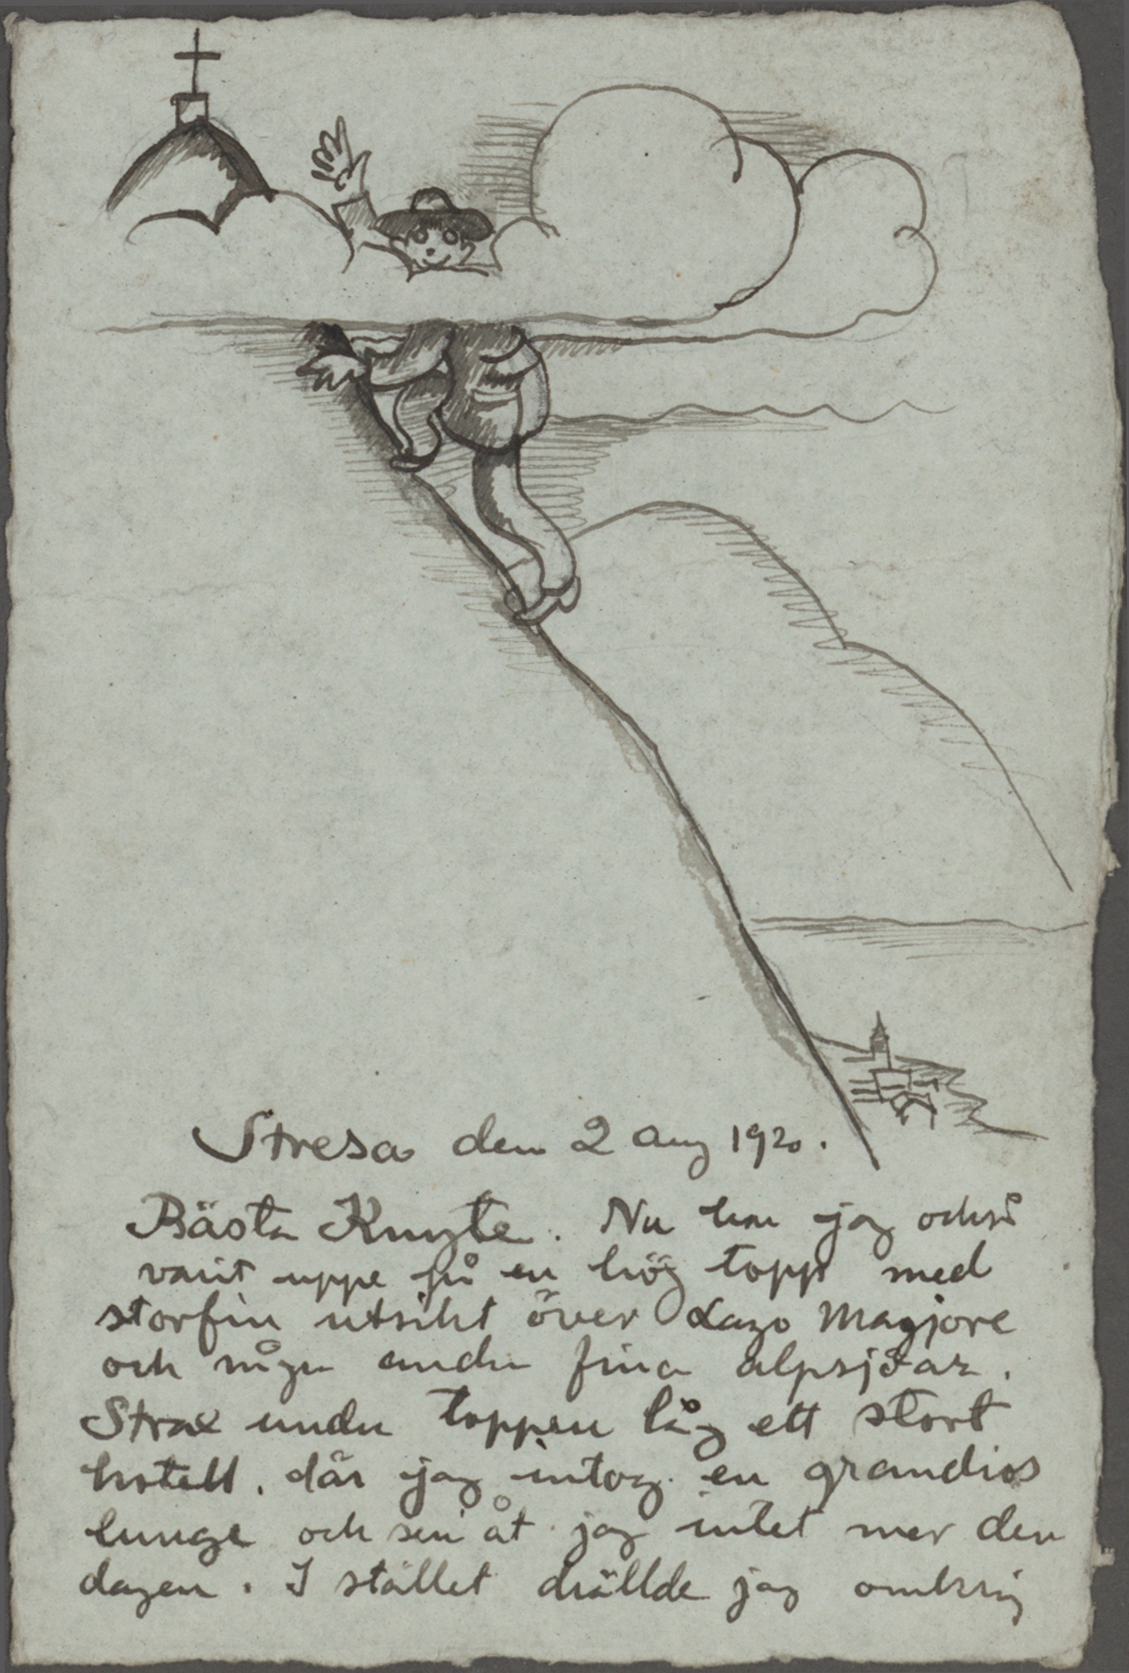 Stresa den 2 aug 1920.
Bästa Knyte. Nu har jag också
varit uppe på en hög topp med
storfin utsikt över Lago Magjore
och några andra fina alpsjöar.
Strax under toppen låg ett stort
hotell, där jag intog en grandios
lunge och sen åt jag intet mer den
dagen. I stället drällde jag omkring